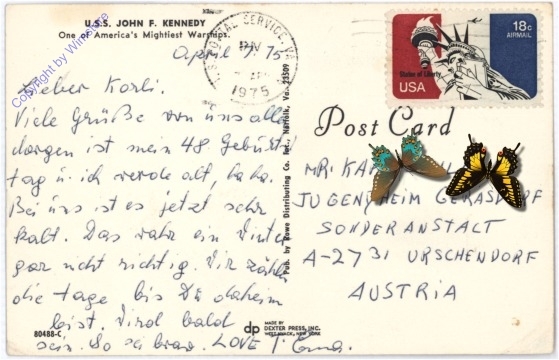 U.S.S. JOHN F. KENNEDY
One of America's Mightiest Warships.
Copyright by
April 7, 75
Lieber Karli.
Viele Grüße von uns alle
Morgen ist mein 48 Geburts
tag u. ich werde alt, ha ha.
Bei uns ist es jetzt sehr
kalt. Das wahr ein Winter
gar nicht richtig. Wir zählen
die tage bis Du daheim
bist. Wird bald
sein. So sei brav. LOVE T.
80488-C
Pub. by Rowe Distributing Co. Inc., Norfolk, Va. 23509
1975
18c
AIRMAIL
Statue of Liberty
USA
Post Card
MR.
JUGENDHEIM GERASDORF
SONDERANSTALT
A-2731 URSCHENDORF
AUSTRIA
dp MADE BY
DEXTER PRESS, INC.
WEST NYACK, NEW YORK